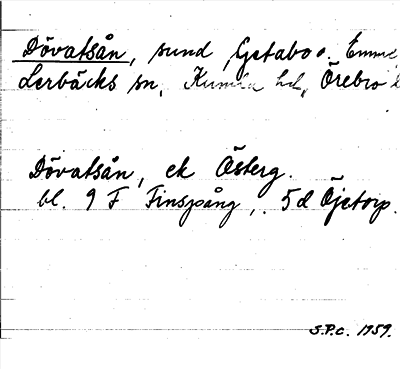 Dövatsån, sund, Getabo o. Emme
Lerbäcks sn, Kumla hd, Örebro l
Dövatsån, ek Österg.
bl. 9 F Finspång, 5d Öjetorp.
S.P.c. 1959.